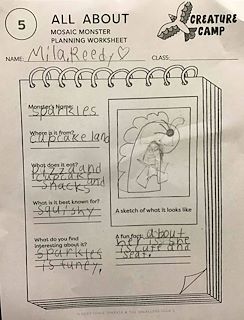 5
ALL ABOUT
MOSAIC MONSTER
PLANNING WORKSHEET
CREATURE
CAMP
NAME: Mila, Reed, ♡ CLASS:
Monster's Name:
Sparkles
Where is it from?
Cupcake land
What does it eat?
Pizza and
cupcake and
snacks
What is it best known for?
Squishy
What do you find
interesting about it?
Sparkles
is
A sketch of what it looks like
A fun fact: about
her is she
is cute and